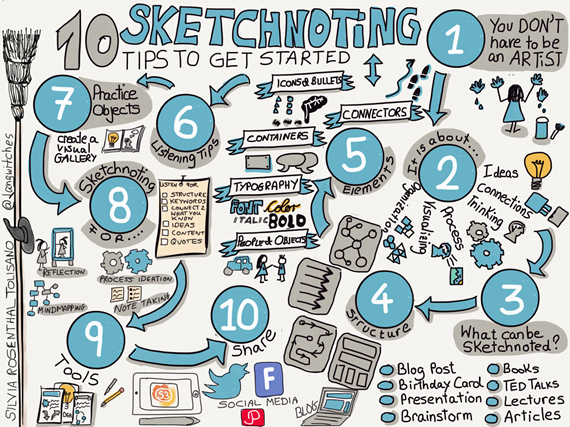 10 SKETCHNOTING
TIPS TO GET STARTED
1
YOU DON'T
have to be
an ARTIST
It is about...
2
Ideas
connections
Thinking
Process
Visualizing
Organization
3
What can be
Sketchnoted?
Blog Post
Birthday Card
Presentation
Brainstorm
Books
TED Talks
Lectures
Articles
4
Structure
5
Elements
ICONS & BULLETS
CONNECTORS
CONTAINERS
TYPOGRAPHY
FONT Color
ITALIC BOLD
People & Objects
6
Listening Tips
LISTEN FOR
STRUCTURE
KEYWORDS
CONNECT 2
WHAT YOU
KNOW
IDEAS
CONTENT
QUOTES
7
Practice
Objects
create a
VISUAL
GALLERY
Sketchnoting
8
FOR....
REFLECTION
PROCESS IDEATION
MINDMAPPING
NOTE TAKING
9
Tools
53
10
Share
SOCIAL MEDIA
F
BLOG
SILVIA ROSENTHAL TOLISANO @Langwitches